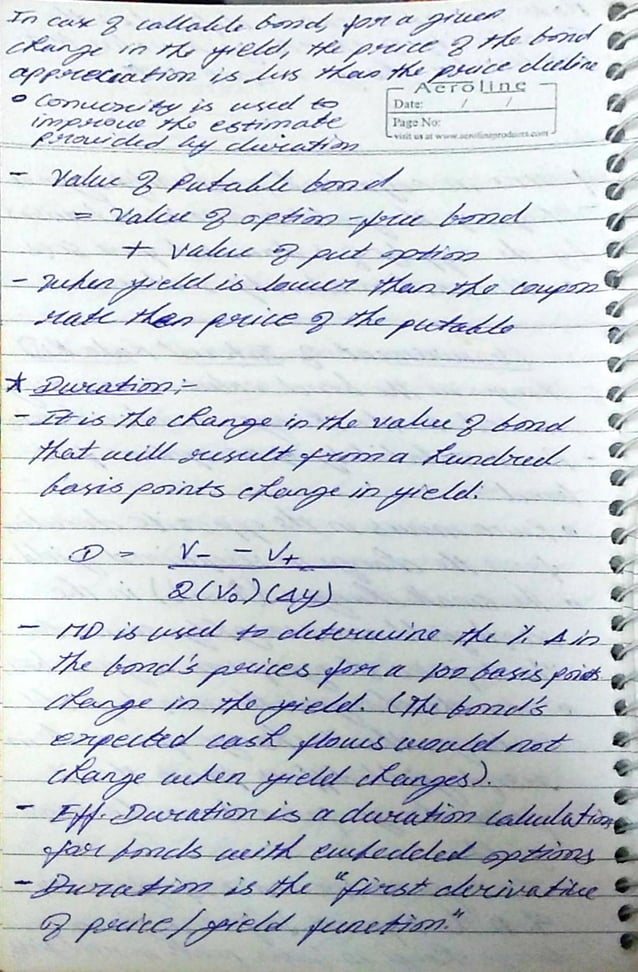 In case of callable bond, for a given
change in the yield, the price of the bond
appreciation is less than the price decline
Aeroline
Date: / /
Page No:
visit us at www.aerolineproducts.com
• Convexity is used to
improve the estimate
provided by duration
- Value of Putable bond
= Value of option-free bond
+ Value of put option
- When yield is lower than the coupon
rate then price of the putable
* Duration:-
- It is the change in the value of bond
that will result from a hundred
basis points change in yield.
D = V- - V+
2(V0)(Δy)
- MD is used to determine the % Δ in
the bond's prices for a 100 basis points
change in the yield. (The bond's
expected cash flows would not
change when yield changes).
- Eff. Duration is a duration calculation
for bonds with embedded options
- Duration is the "first derivative
of price/yield function."